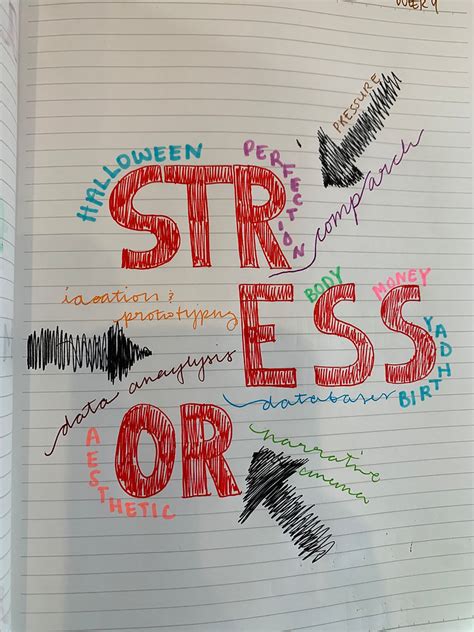 WEEK
PRESSURE
HALLOWEEN
PERFECTION
STR
comparch
ideation &
prototypng
BODY
MONEY
ESS
BIRTHDAY
data anaylysis
databases
OR
AESTHETIC
narrative
cinema